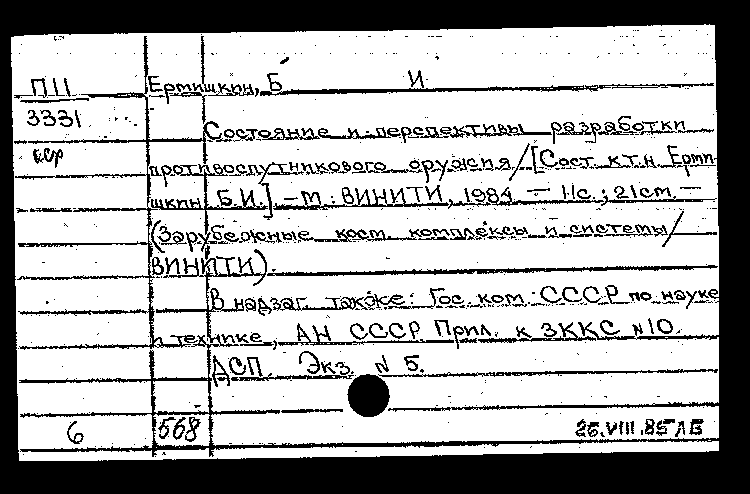 П11 Ермишкин, Б И.
3331
Состояние и перспективы разработки
противоспутникового оружия/[Сост. к.т.н. Ерми-
шкин Б.И.] – М.: ВИНИТИ, 1984 – 11с.; 21см. –
(Зарубежные косм. комплексы и системы/
ВИНИТИ).
В надзаг. также: Гос. ком. СССР по науке
и технике, АН СССР. Прил. к ЗККС N10.
ДСП. Экз. N 5.
6 568 26.VIII.85 ЛБ